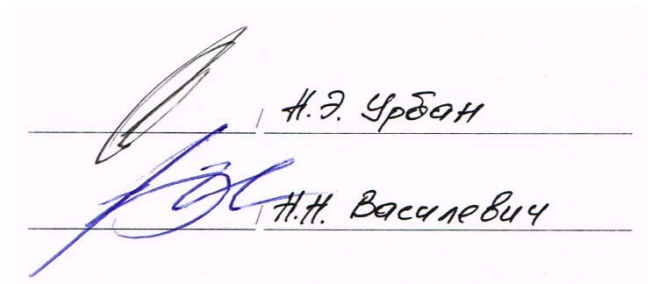 Н.Э. Урбан
Н.Н. Василевич